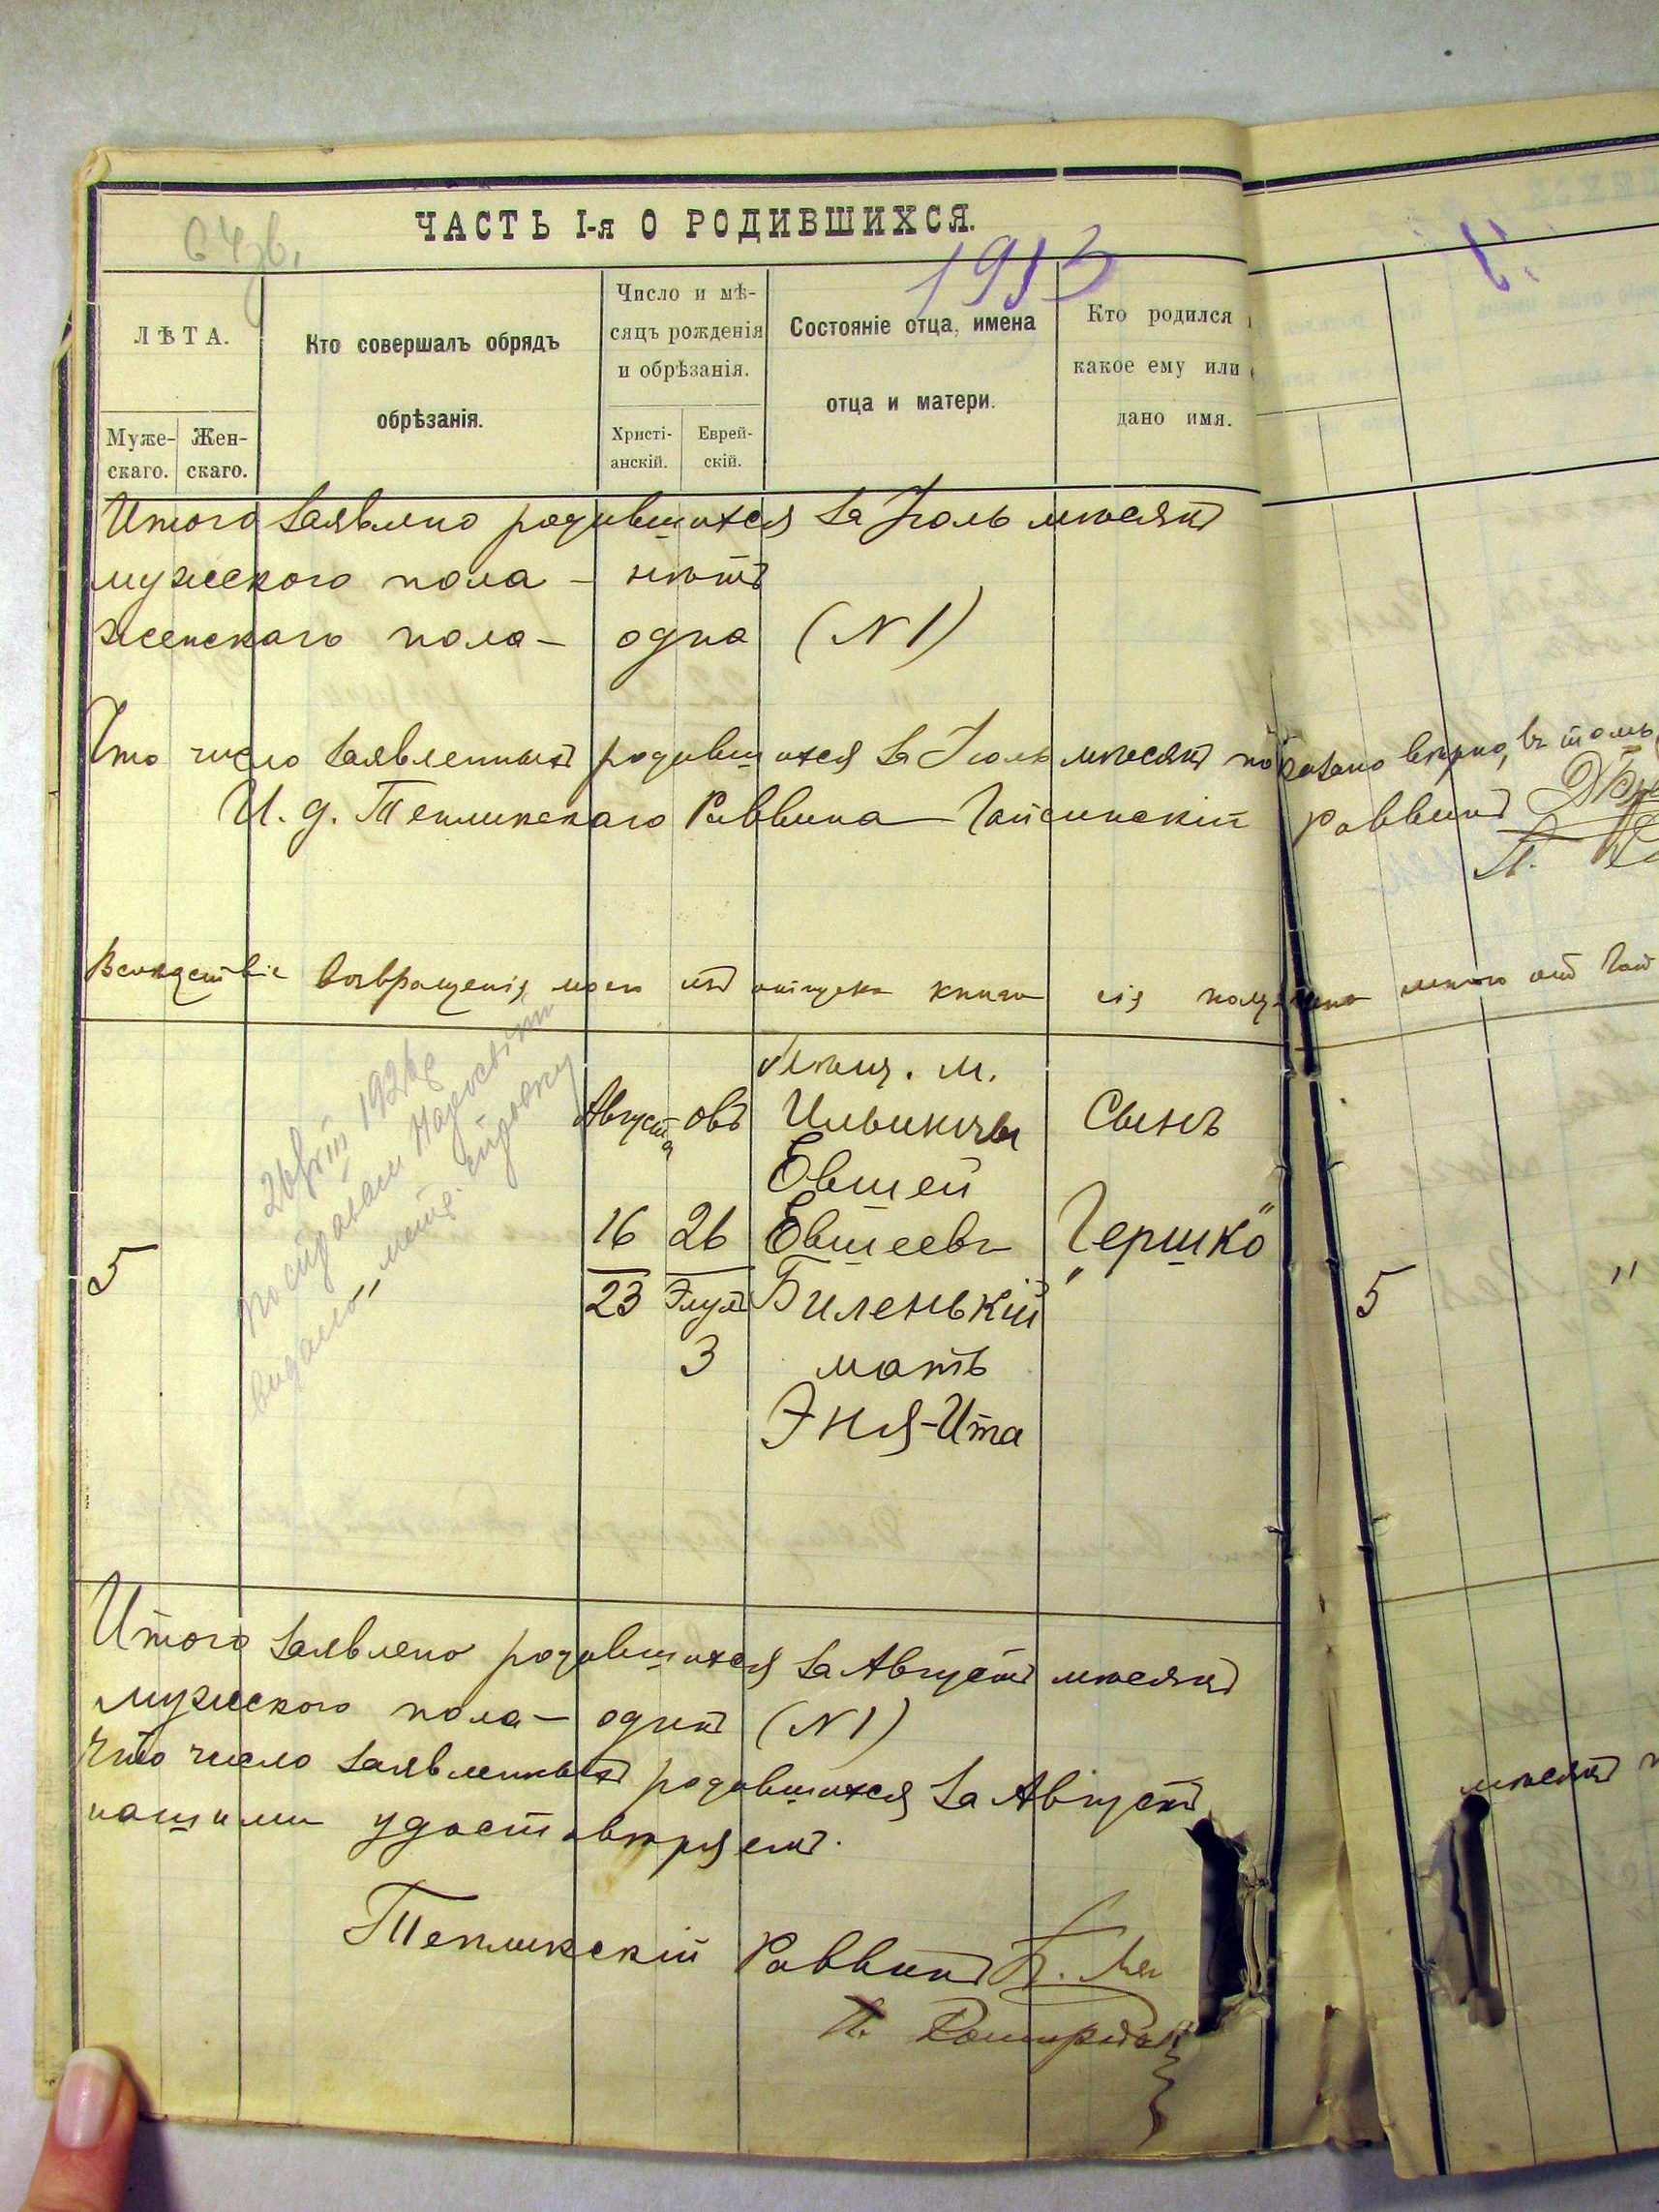 ЧАСТЬ I-я О РОДИВШИХСЯ.
1913
ЛѢТА.
Муже-
скаго.
Жен-
скаго.
Кто совершалъ обрядъ
обрѣзанія.
Число и мѣ-
сяцъ рожденія
и обрѣзанія.
Христі-
анскій.
Еврей-
скій.
Состояніе отца, имена
отца и матери.
Кто родился
какое ему или
дано имя.
Итого заявлено родившихся за Іюль мѣсяцъ
мужского пола – нѣтъ
женскаго пола – одна (N 1)
Что число заявленныхъ родившихся за Іюль мѣсяцъ показано вѣрно, въ томъ
И. д. Тепликскаго Раввина Гайсинскій Раввинъ
Вслѣдствіе возвращенія моего изъ отпуска книга сія получена мною отъ Гай
5
Августа
16
23
Овъ
26
Элулъ
3
Мѣщ. м.
Ильинцы
Евшей
Евшеевъ
Биленькій
мать
Эня-Ита
Сынъ
"Гершко"
5
"
Итого заявлено родившихся за Августъ мѣсяцъ
мужского пола – одинъ (N 1)
Что число заявленныхъ родившихся за Августъ мѣсяцъ
нашими удостовѣряемъ.
Тепликскій Раввинъ